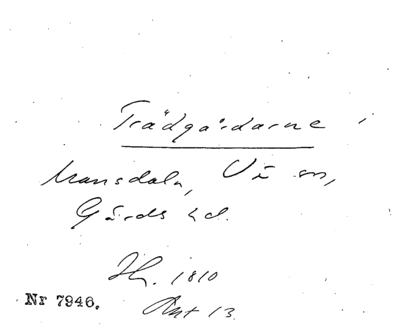 Trädgårdarne i
Mansdala, Vä sn,
Gärds hd.
Hr. 1810
Nr 7946.
Akt 13